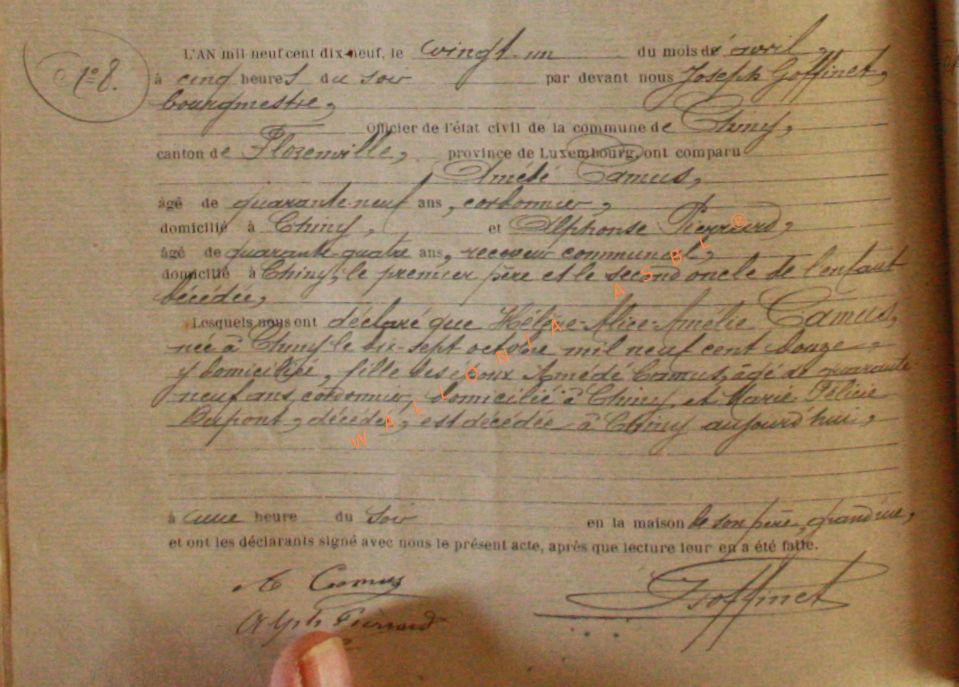 N° 8.
L'AN mil neuf cent dix-neuf, le vingt un du mois d'avril,
à cinq heures du soir par devant nous Joseph Goffinet,
bourgmestre,
Officier de l'état civil de la commune de Chiny,
canton de Florenville, province de Luxembourg, ont comparu
Amédé Camus,
âgé de quarante-neuf ans, cordonnier,
domicilié à Chiny, et Alphonse Pierrard,
âgé de quarante-quatre ans, receveur communal,
domicilié à Chiny, le premier père et le second oncle de l'enfant
décédée,
Lesquels nous ont déclaré que Hélène-Alice-Amélie Camus,
née à Chiny le dix-sept octobre mil neuf cent douze
y domiciliée, fille des époux Amédé Camus, âgé de quarante-
neuf ans, cordonnier, domicilié à Chiny et Marie Félicie
Dupont, décédée, est décédée à Chiny aujourd'hui,
à une heure du soir en la maison de son père, grand'rue,
et ont les déclarants signé avec nous le présent acte, après que lecture leur en a été faite.
A Camus Goffinet
Alph Pierrard
WALLONIA ASBL ®